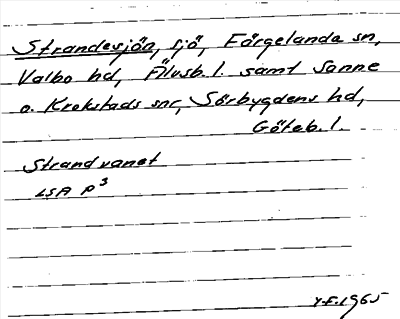 Strandesjön, sjö, Färgelanda sn,
Valbo hd, Älvsb. l. samt Sanne
o. Krokstads snr, Sörbygdens hd,
Göteb. l.
Strandvanet
LSA P³
Y-F. 1965